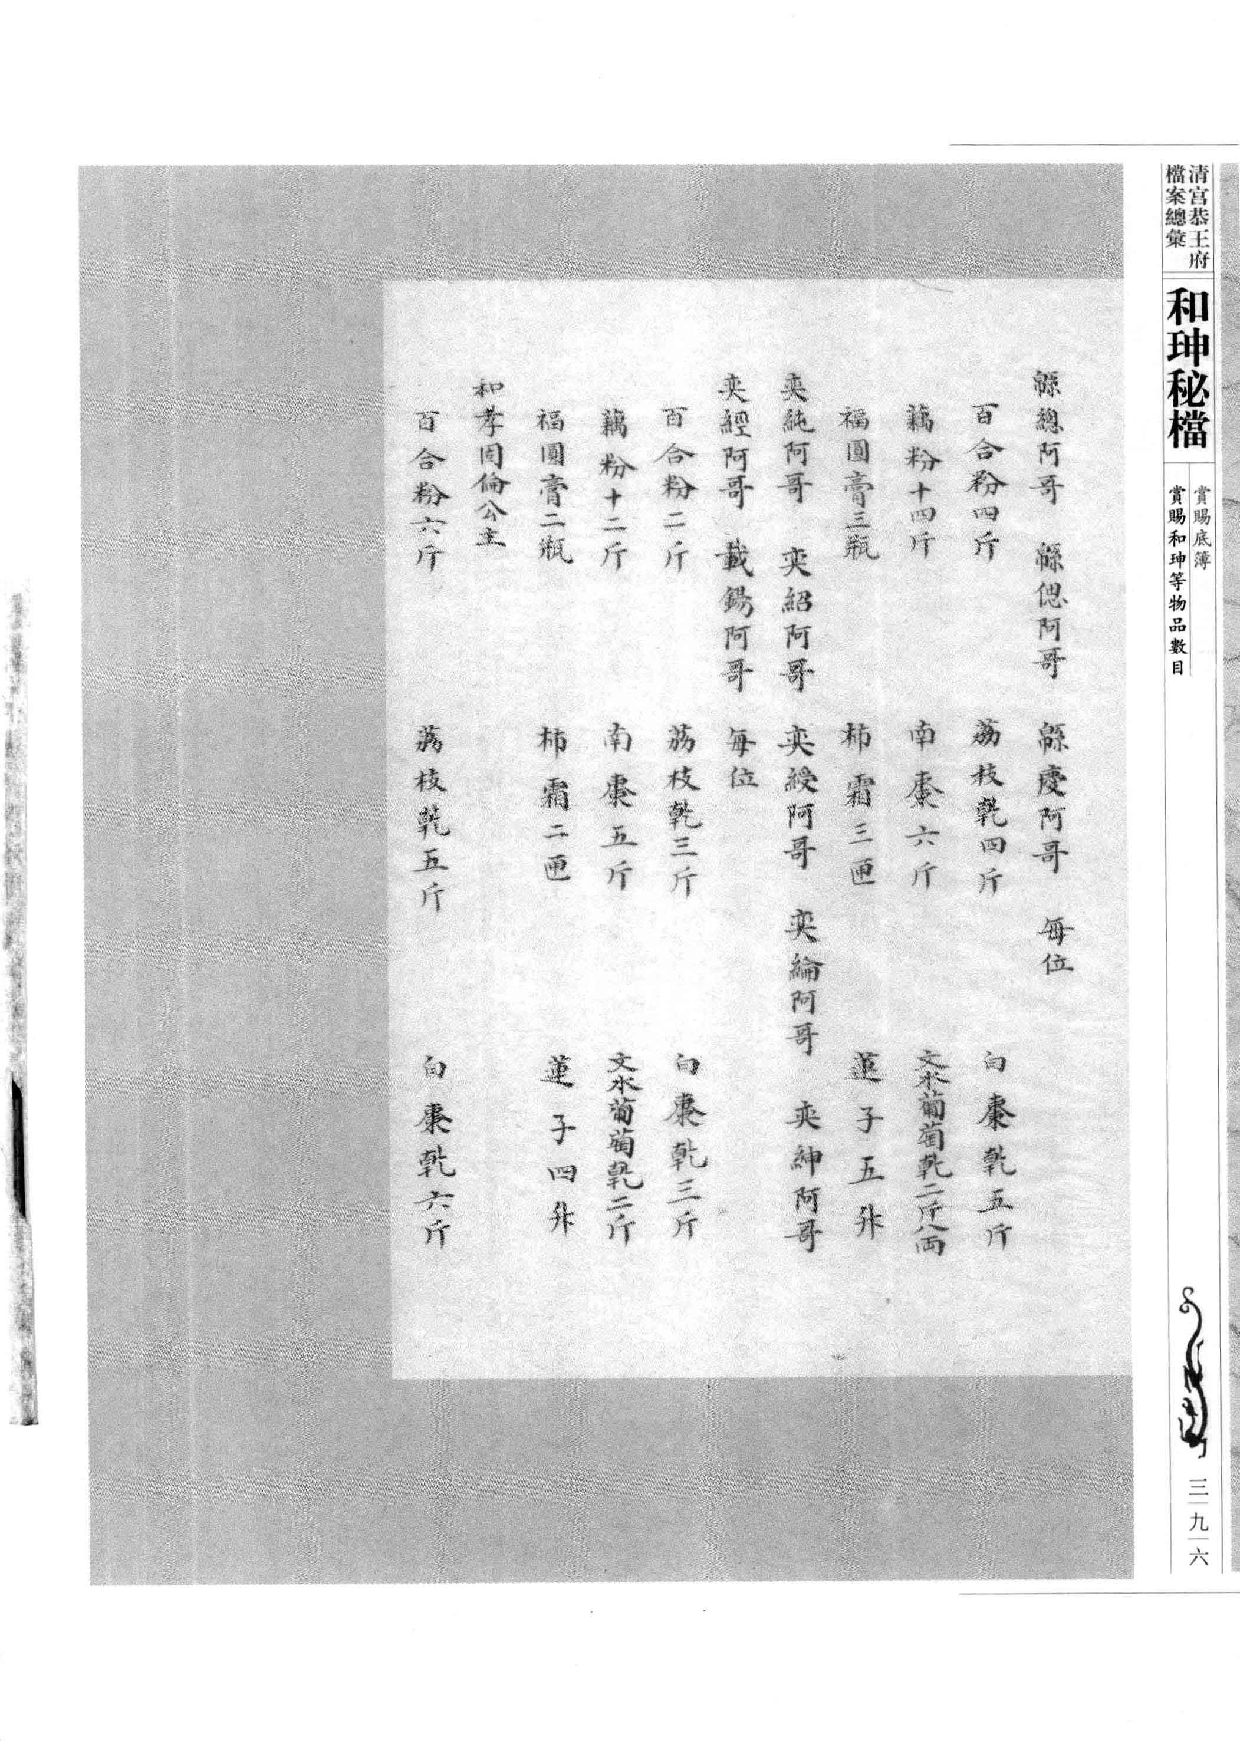 清宮恭王府
檔案總彙
和珅秘檔
賞賜底簿
賞賜和珅等物品數目
緜總阿哥　緜偲阿哥　緜慶阿哥　每位
百合粉四斤　荔枝乾四斤　白棗乾五斤
藕粉十四斤　南棗六斤　文水葡萄乾二斤八兩
福圓膏三瓶　柿霜三匣　蓮子五升
奕純阿哥　奕紹阿哥　奕綬阿哥　奕綸阿哥　奕紳阿哥
奕經阿哥　載錫阿哥　每位
百合粉二斤　荔枝乾三斤　白棗乾三斤
藕粉十二斤　南棗五斤　文水葡萄乾二斤
福圓膏二瓶　柿霜二匣　蓮子四升
和孝固倫公主
百合粉六斤　荔枝乾五斤　白棗乾六斤
三九六